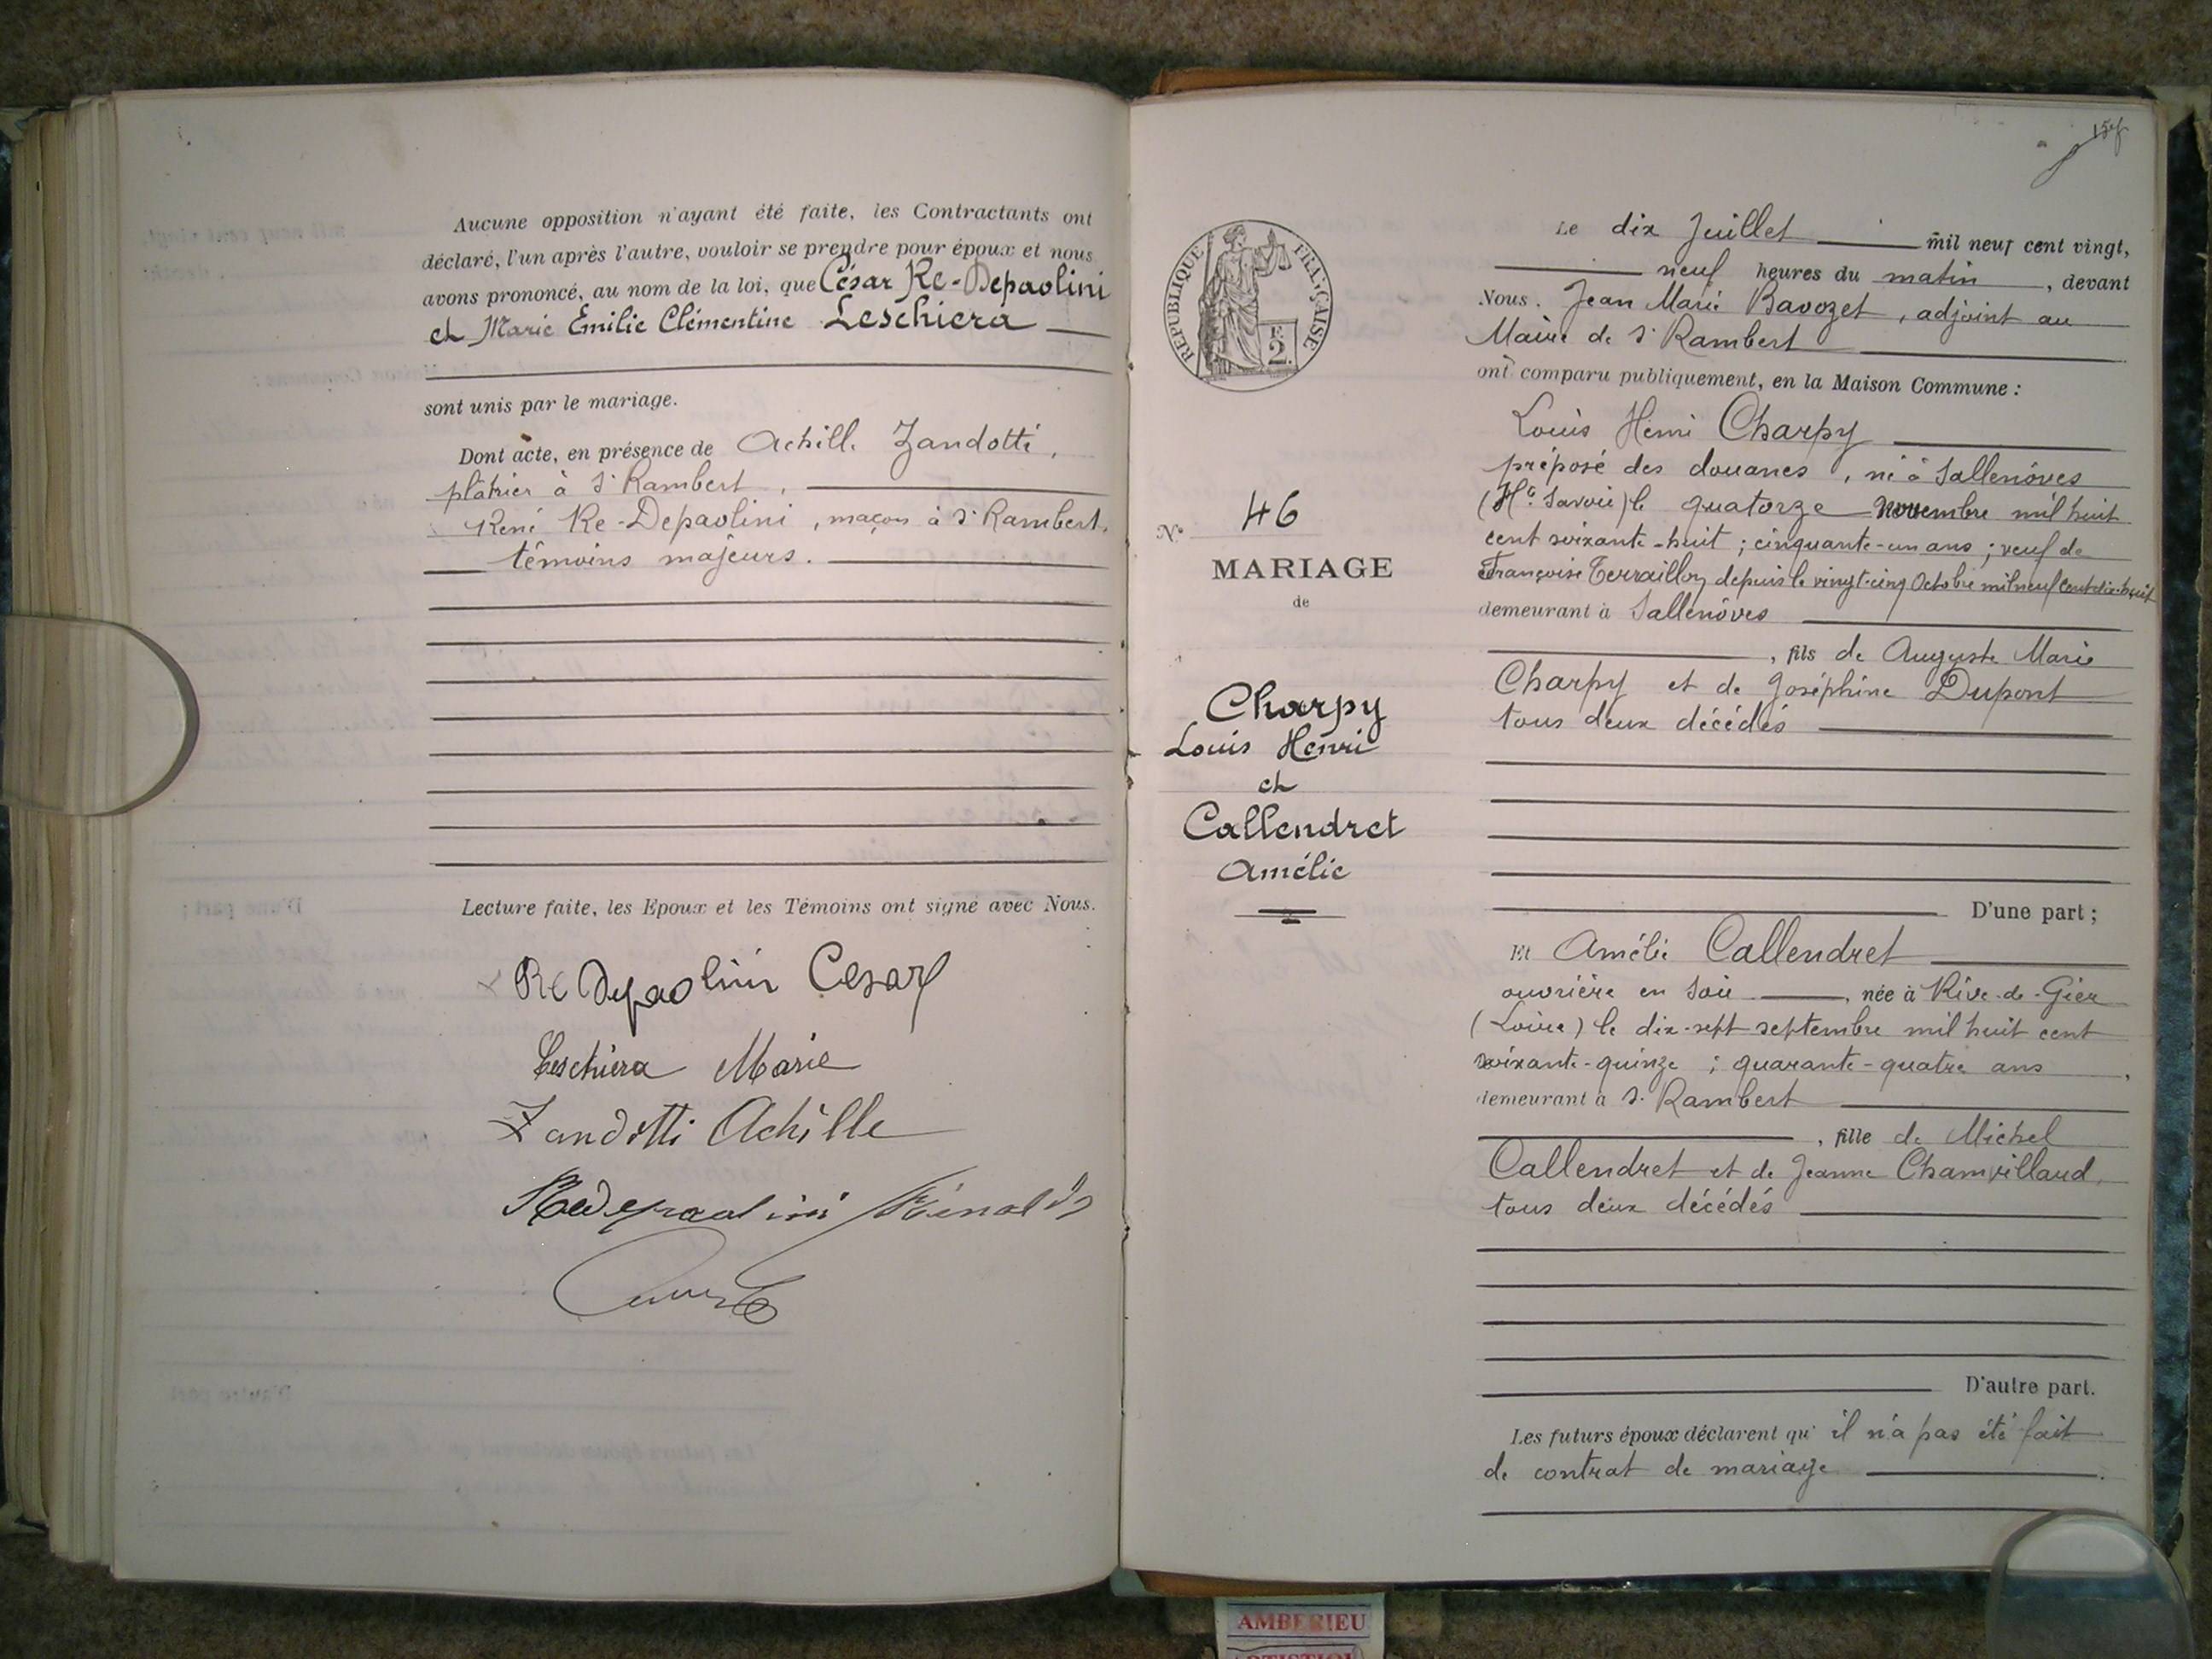 Aucune opposition n'ayant été faite, les Contractants ont
déclaré, l'un après l'autre, vouloir se prendre pour époux et nous
avons prononcé, au nom de la loi, que César Re-Depaolini
et Marie Emilie Clémentine Leschiera
sont unis par le mariage.
Dont acte, en présence de Achille Zandotti,
plâtrier à St Rambert,
René Re-Depaolini, maçon à St Rambert,
témoins majeurs.
Lecture faite, les Epoux et les Témoins ont signé avec Nous.
Re Depaolini Cesar
Leschiera Marie
Zandotti Achille
Redepaolini
REPUBLIQUE FRANÇAISE
F.
2.
N° 46
MARIAGE
de
Charpy
Louis Henri
et
Callendret
Amélie
Le dix Juillet mil neuf cent vingt,
neuf heures du matin, devant
Nous. Jean Marie Bavozet, adjoint au
Maire de St Rambert
ont comparu publiquement, en la Maison Commune :
Louis Henri Charpy
préposé des douanes, né à Sallenôves
(Hte Savoie) le quatorze novembre mil huit
cent soixante-huit ; cinquante-un ans ; veuf de
Françoise Terraillon depuis le vingt-cinq Octobre mil neuf cent dix-huit
demeurant à Sallenôves
, fils de Auguste Marie
Charpy et de Joséphine Dupont
tous deux décédés
D'une part ;
Et Amélie Callendret
ouvrière en soie, née à Rive-de-Gier
(Loire) le dix-sept septembre mil huit cent
soixante-quinze ; quarante-quatre ans,
demeurant à St Rambert
, fille de Michel
Callendret et de Jeanne Chamvillaud,
tous deux décédés
D'autre part.
Les futurs époux déclarent qu'il n'a pas été fait
de contrat de mariage.
AMBERIEU